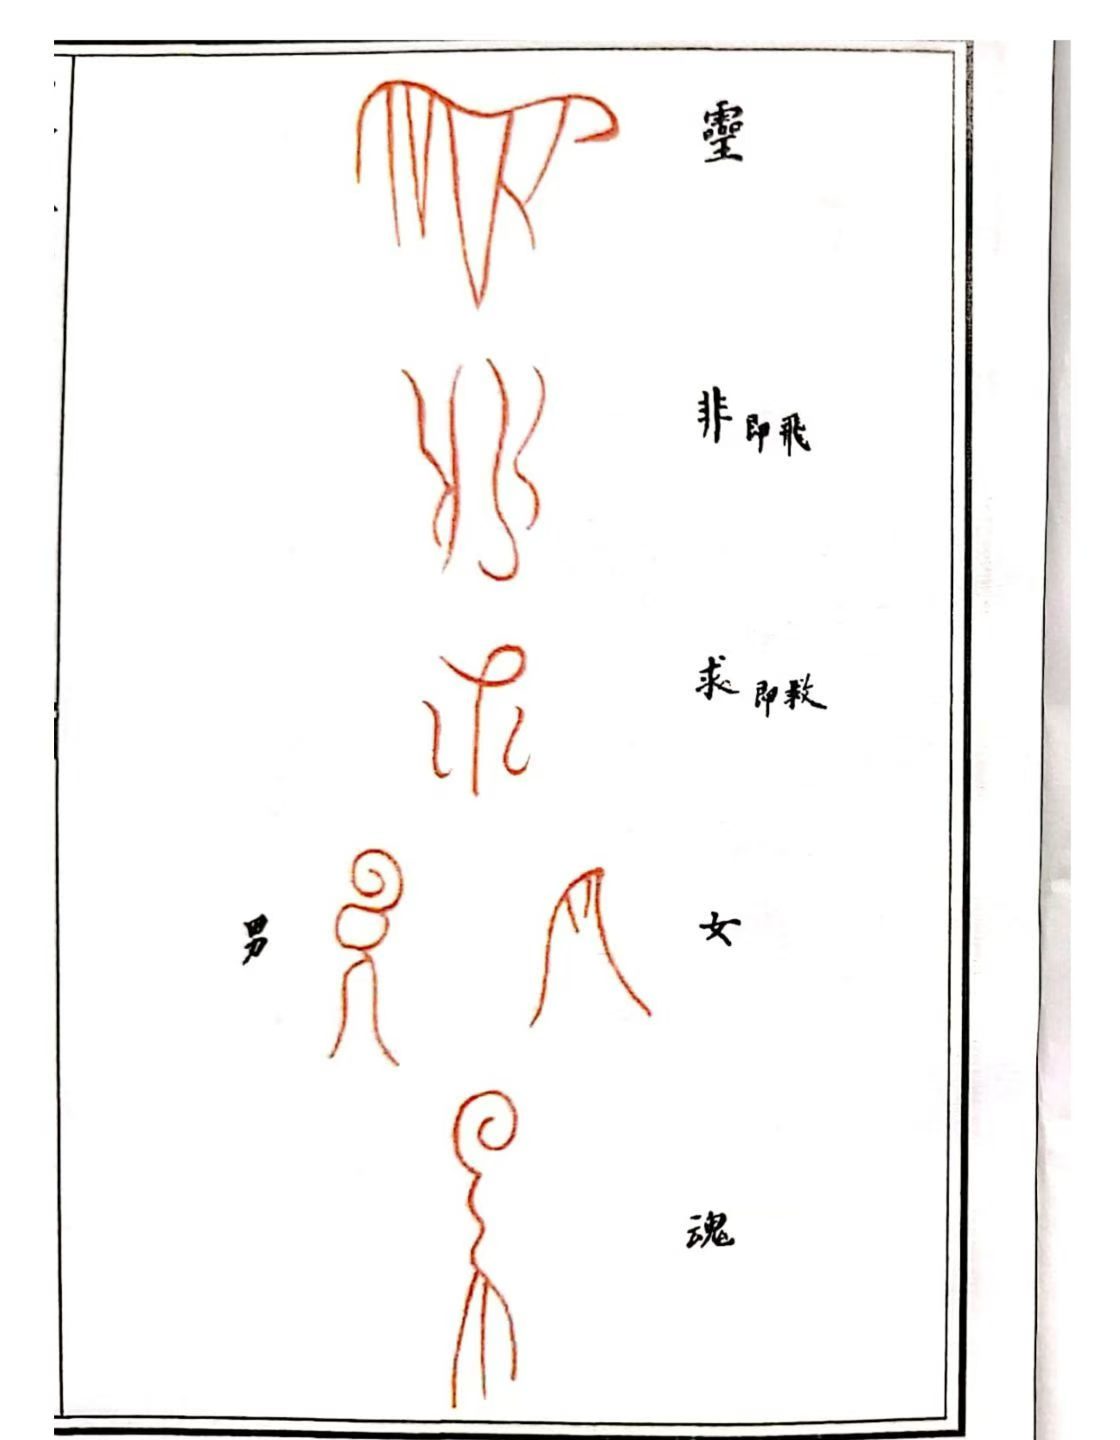 靈
非 即飛
求 即救
男 女
魂